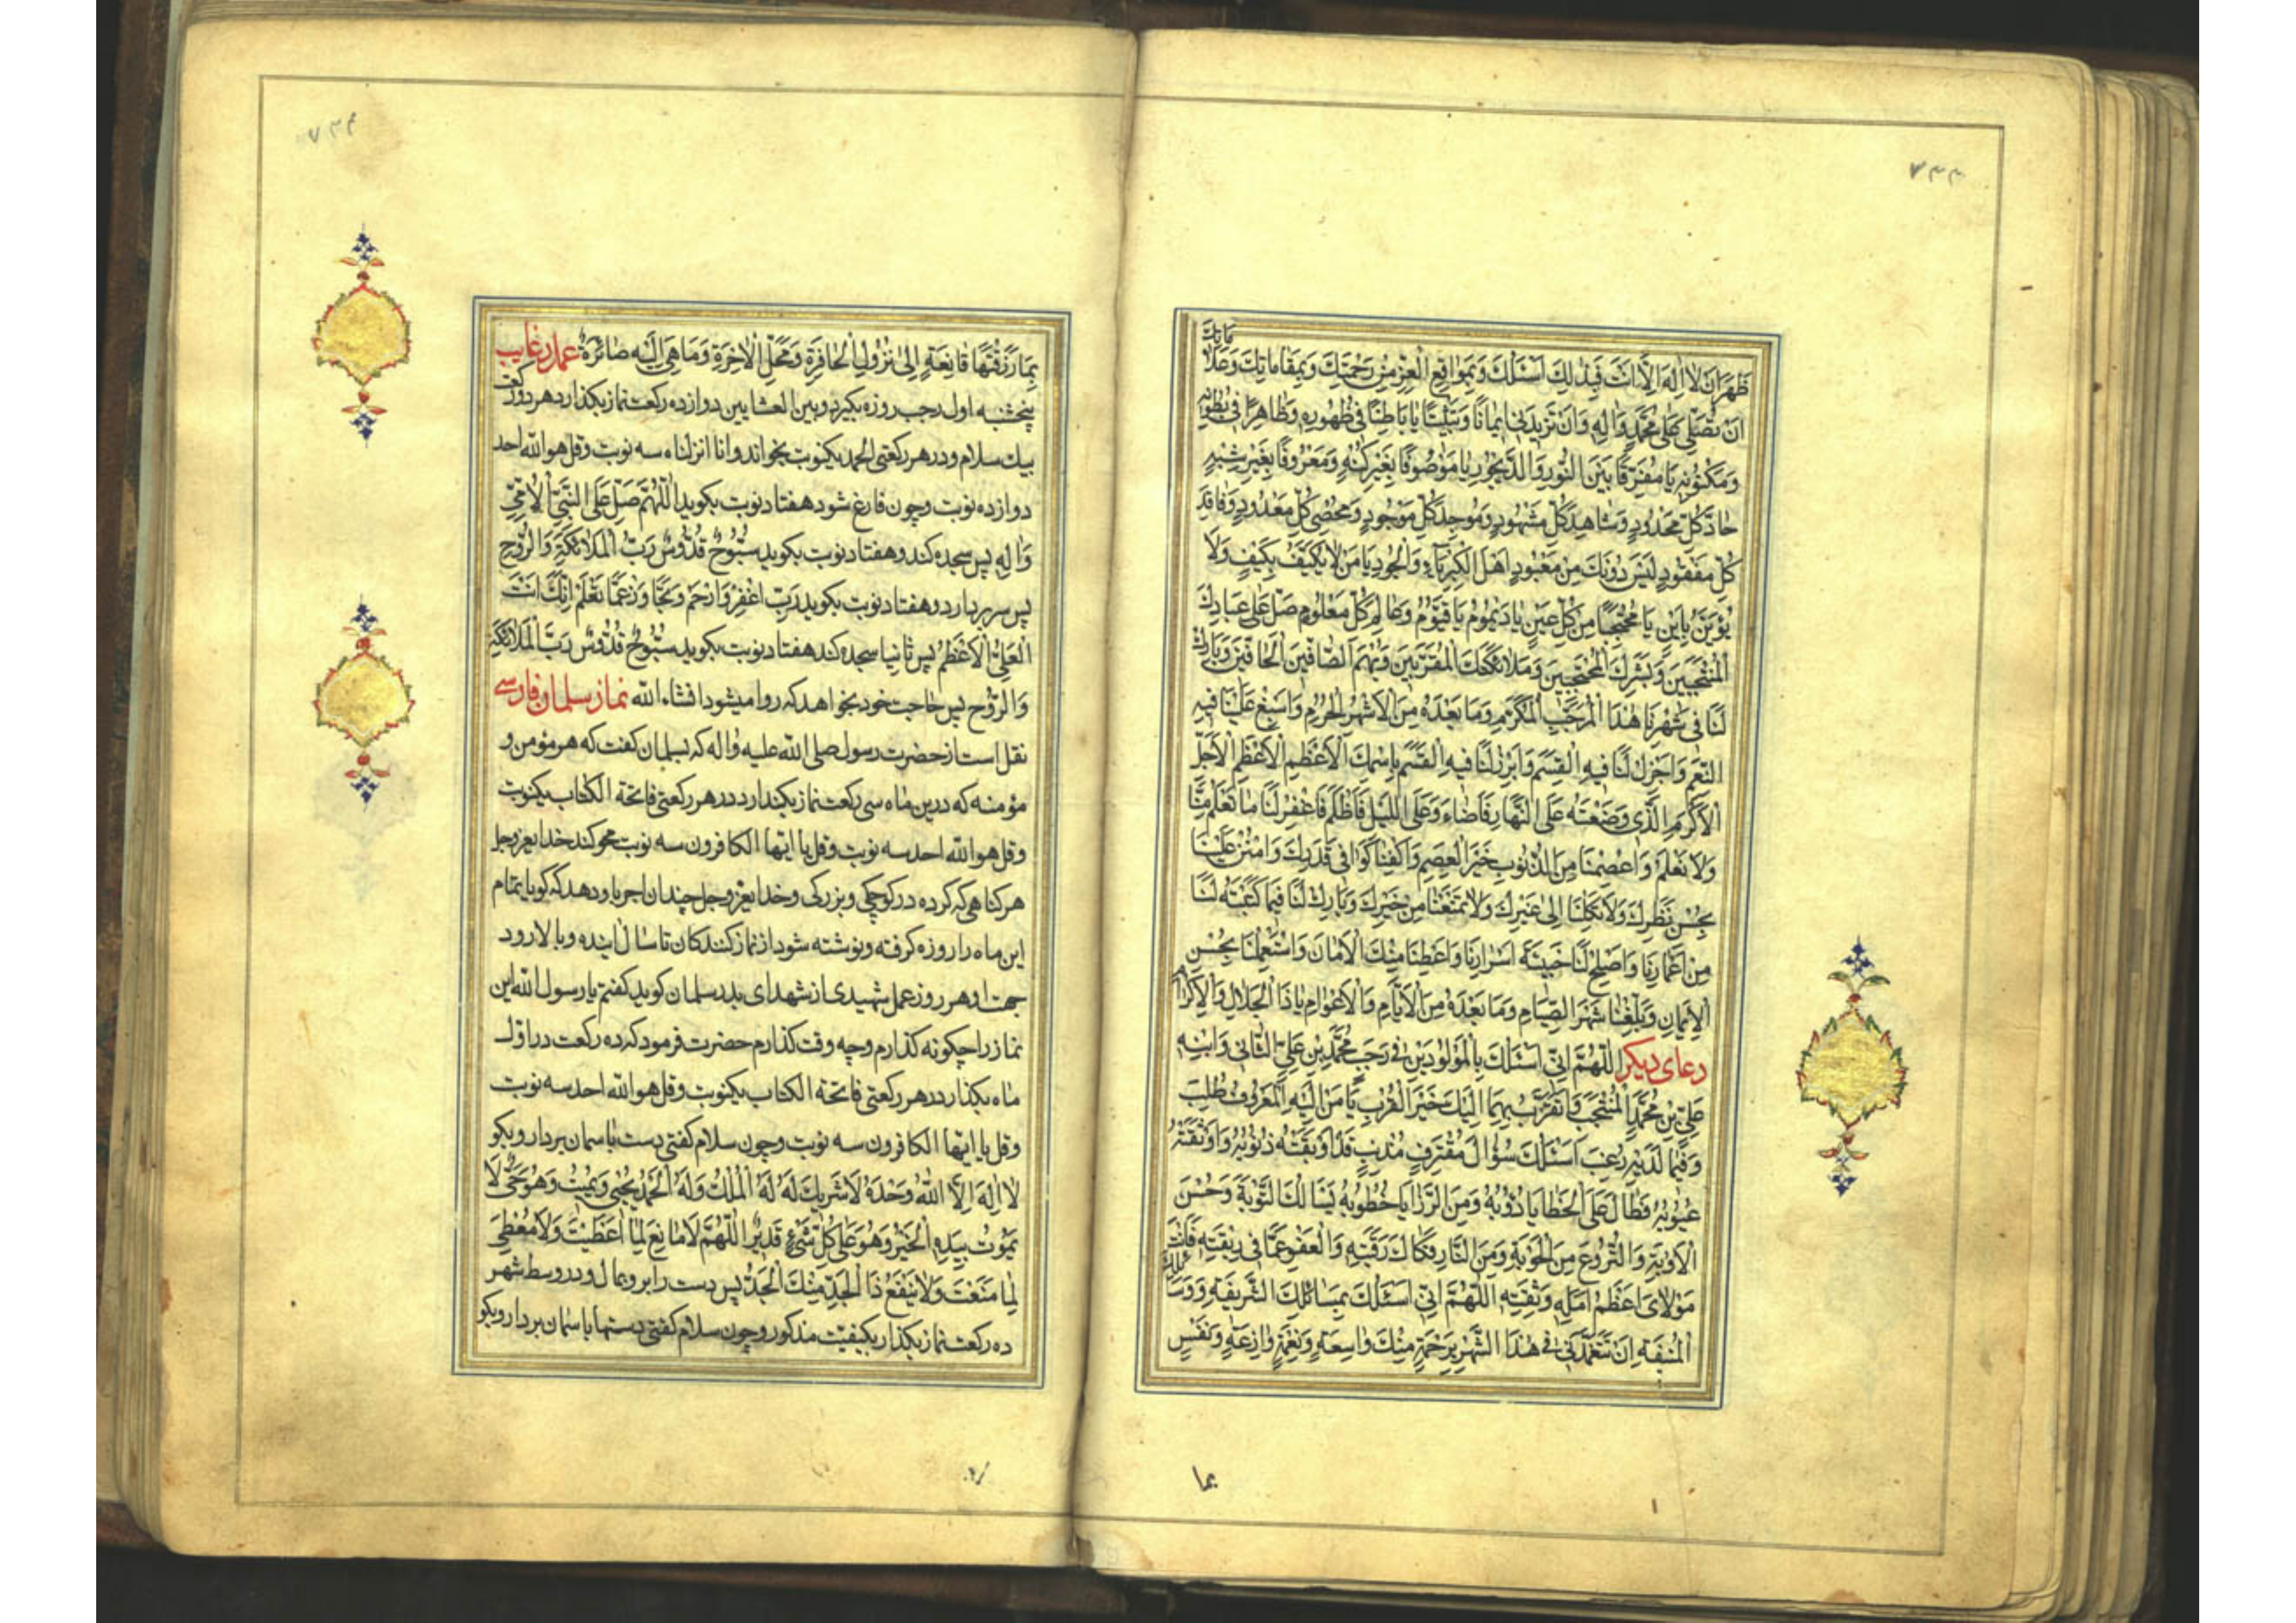 ٧٣٣
مَاتِكَ
ظَهَرَ اَنْ لَا اِلٰهَ اِلَّا اَنْتَ فَبِذٰلِكَ اَسْئَلُكَ وَبِمَوَاقِعِ الْعِزِّ مِنْ رَحْمَتِكَ وَبِمَقَامَاتِكَ وَعَلَا
اَنْ تُصَلِّيَ عَلٰى مُحَمَّدٍ وَاٰلِهٖ وَاَنْ تَزِيدَنِى اِيمَانًا وَتَثْبِيتًا يَا بَاطِنًا فِى ظُهُورِهٖ وَظَاهِرًا فِى بُطُونِهٖ
وَمَكْنُونِهٖ يَا مُفَرِّقًا بَيْنَ النُّورِ وَالدَّيْجُورِ يَا مَوْصُوفًا بِغَيْرِ كُنْهٍ وَمَعْرُوفًا بِغَيْرِ شِبْهٍ
حَادَّ كُلِّ مَحْدُودٍ وَشَاهِدَ كُلِّ مَشْهُودٍ وَمُوجِدَ كُلِّ مَوْجُودٍ وَمُحْصِىَ كُلِّ مَعْدُودٍ وَفَاقِدَ
كُلِّ مَفْقُودٍ لَيْسَ دُونَكَ مِنْ مَعْبُودٍ اَهْلَ الْكِبْرِيَاءِ وَالْجُودِ يَا مَنْ لَا يُكَيَّفُ بِكَيْفٍ وَلَا
يُؤَيَّنُ بِاَيْنٍ يَا مُحْتَجِبًا مِنْ كُلِّ عَيْنٍ يَا دَيْمُومُ يَا قَيُّومُ وَعَالِمَ كُلِّ مَعْلُومٍ صَلِّ عَلٰى عِبَادِكَ
الْمُنْتَجَبِينَ وَبَشَرِكَ الْمُحْتَجِبِينَ وَمَلَائِكَتِكَ الْمُقَرَّبِينَ وَبُهَمِ الصَّافِّينَ الْحَافِّينَ وَبَارِكْ
لَنَا فِى شَهْرِنَا هٰذَا الْمُرَجَّبِ الْمُكَرَّمِ وَمَا بَعْدَهُ مِنَ الْاَشْهُرِ الْحُرُمِ وَاَسْبِغْ عَلَيْنَا فِيهِ
النِّعَمَ وَاَجْزِلْ لَنَا فِيهِ الْقِسَمَ وَاَبْرِرْ لَنَا فِيهِ الْقَسَمَ بِاِسْمِكَ الْاَعْظَمِ الْاَعْظَمِ الْاَجَلِّ
الْاَكْرَمِ الَّذِى وَضَعْتَهُ عَلَى النَّهَارِ فَاَضَاءَ وَعَلَى اللَّيْلِ فَاَظْلَمَ فَاغْفِرْ لَنَا مَا تَعْلَمُ مِنَّا
وَلَا نَعْلَمُ وَاعْصِمْنَا مِنَ الذُّنُوبِ خَيْرَ الْعِصَمِ وَاكْفِنَا كَوَافِىَ قَدَرِكَ وَامْنُنْ عَلَيْنَا
بِحُسْنِ نَظَرِكَ وَلَا تَكِلْنَا اِلٰى غَيْرِكَ وَلَا تَمْنَعْنَا مِنْ خَيْرِكَ وَبَارِكْ لَنَا فِيمَا كَتَبْتَهُ لَنَا
مِنْ اَعْمَارِنَا وَاَصْلِحْ لَنَا خَبِيئَةَ اَسْرَارِنَا وَاَعْطِنَا مِنْكَ الْاَمَانَ وَاسْتَعْمِلْنَا بِحُسْنِ
الْاِيمَانِ وَبَلِّغْنَا شَهْرَ الصِّيَامِ وَمَا بَعْدَهُ مِنَ الْاَيَّامِ وَالْاَعْوَامِ يَا ذَا الْجَلَالِ وَالْاِكْرَامِ
دعاى ديكر اَللّٰهُمَّ اِنِّى اَسْئَلُكَ بِالْمَوْلُودَيْنِ فِى رَجَبٍ مُحَمَّدِ بْنِ عَلِىٍّ الثَّانِى وَابْنِهٖ
عَلِىِّ بْنِ مُحَمَّدٍ الْمُنْتَجَبِ وَاَتَقَرَّبُ بِهِمَا اِلَيْكَ خَيْرَ الْقُرَبِ يَا مَنْ اِلَيْهِ الْمَعْرُوفُ طُلِبَ
وَفِيمَا لَدَيْهِ رُغِبَ اَسْئَلُكَ سُؤَالَ مُقْتَرِفٍ مُذْنِبٍ قَدْ اَوْبَقَتْهُ ذُنُوبُهُ وَاَوْثَقَتْهُ
عُيُوبُهُ فَطَالَ عَلَى الْخَطَايَا دُؤُبُهُ وَمِنَ الرَّزَايَا خُطُوبُهُ يَسْئَلُكَ التَّوْبَةَ وَحُسْنَ
الْاَوْبَةِ وَالنُّزُوعَ مِنَ الْحَوْبَةِ وَمِنَ النَّارِ فَكَاكَ رَقَبَتِهٖ وَالْعَفْوَ عَمَّا فِى رِبْقَتِهٖ فَاَنْتَ
مَوْلَاىَ اَعْظَمُ اَمَلِهٖ وَثِقَتِهٖ اَللّٰهُمَّ اِنِّى اَسْئَلُكَ بِمَسَائِلِكَ الشَّرِيفَةِ وَوَسَائِلِكَ
الْمُنِيفَةِ اَنْ تَتَغَمَّدَنِى فِى هٰذَا الشَّهْرِ بِرَحْمَةٍ مِنْكَ وَاسِعَةٍ وَنِعْمَةٍ وَازِعَةٍ وَنَفْسٍ
بما
٧٣٤
بِمَا رَزَقْتَهَا قَانِعَةٍ اِلٰى نُزُولِ الْحَافِرَةِ وَمَحَلِّ الْاٰخِرَةِ وَمَا هِىَ اِلَيْهِ صَائِرَةٌ عمل رغايب
پنجشنبه اول رجب روزه بكيرد و بين العشايين دوازده ركعت نماز بكذارد هر دو ركعت
بيك سلام و در هر ركعتى الحمد يكنوبت بخواند و انا انزلناه سه نوبت و قل هو الله احد
دوازده نوبت و چون فارغ شود هفتاد نوبت بكويد اَللّٰهُمَّ صَلِّ عَلَى النَّبِىِّ الْاُمِّىِّ
وَاٰلِهٖ پس سجده كند و هفتاد نوبت بكويد سُبُّوحٌ قُدُّوسٌ رَبُّ الْمَلَائِكَةِ وَالرُّوحِ
پس سر بردارد و هفتاد نوبت بكويد رَبِّ اغْفِرْ وَارْحَمْ وَتَجَاوَزْ عَمَّا تَعْلَمُ اِنَّكَ اَنْتَ
الْعَلِىُّ الْاَعْظَمُ پس ثانيا سجده كند هفتاد نوبت بكويد سُبُّوحٌ قُدُّوسٌ رَبُّ الْمَلَائِكَةِ
وَالرُّوحِ پس حاجت خود بخواهد كه روا ميشود انشاء الله نماز سلمان فارسى
نقل است از حضرت رسول صلى الله عليه و اله كه بسلمان كفت كه هر مؤمن و
مؤمنه كه درين ماه سى ركعت نماز بكذارد در هر ركعتى فاتحة الكتاب يكنوبت
و قل هو الله احد سه نوبت و قل يا ايها الكافرون سه نوبت محو كند خداى عز و جل
هر كناهى كه كرده در كوچكى و بزركى و خداى عز و جل چندان اجر باو دهد كه كويا تمام
اين ماه را روزه كرفته و نوشته شود از نماز كنندكان تا سال اينده و بالا رود
جهت او هر روز عمل شهيدى از شهداى بدر سلمان كويد كفتم يا رسول الله اين
نماز را چكونه كذارم و چه وقت كذارم حضرت فرمود كه ده ركعت در اول
ماه بكذار در هر ركعتى فاتحة الكتاب يكنوبت و قل هو الله احد سه نوبت
و قل يا ايها الكافرون سه نوبت و چون سلام كفتى دست باسمان بردار و بكو
لَا اِلٰهَ اِلَّا اللّٰهُ وَحْدَهُ لَا شَرِيكَ لَهُ لَهُ الْمُلْكُ وَلَهُ الْحَمْدُ يُحْيِى وَيُمِيتُ وَهُوَ حَىٌّ لَا
يَمُوتُ بِيَدِهِ الْخَيْرُ وَهُوَ عَلٰى كُلِّ شَىْءٍ قَدِيرٌ اَللّٰهُمَّ لَا مَانِعَ لِمَا اَعْطَيْتَ وَلَا مُعْطِىَ
لِمَا مَنَعْتَ وَلَا يَنْفَعُ ذَا الْجَدِّ مِنْكَ الْجَدُّ پس دست را برو بمال و در وسط شهر
ده ركعت نماز بكذار بكيفيت مذكور و چون سلام كفتى دستها باسمان بردار و بكو